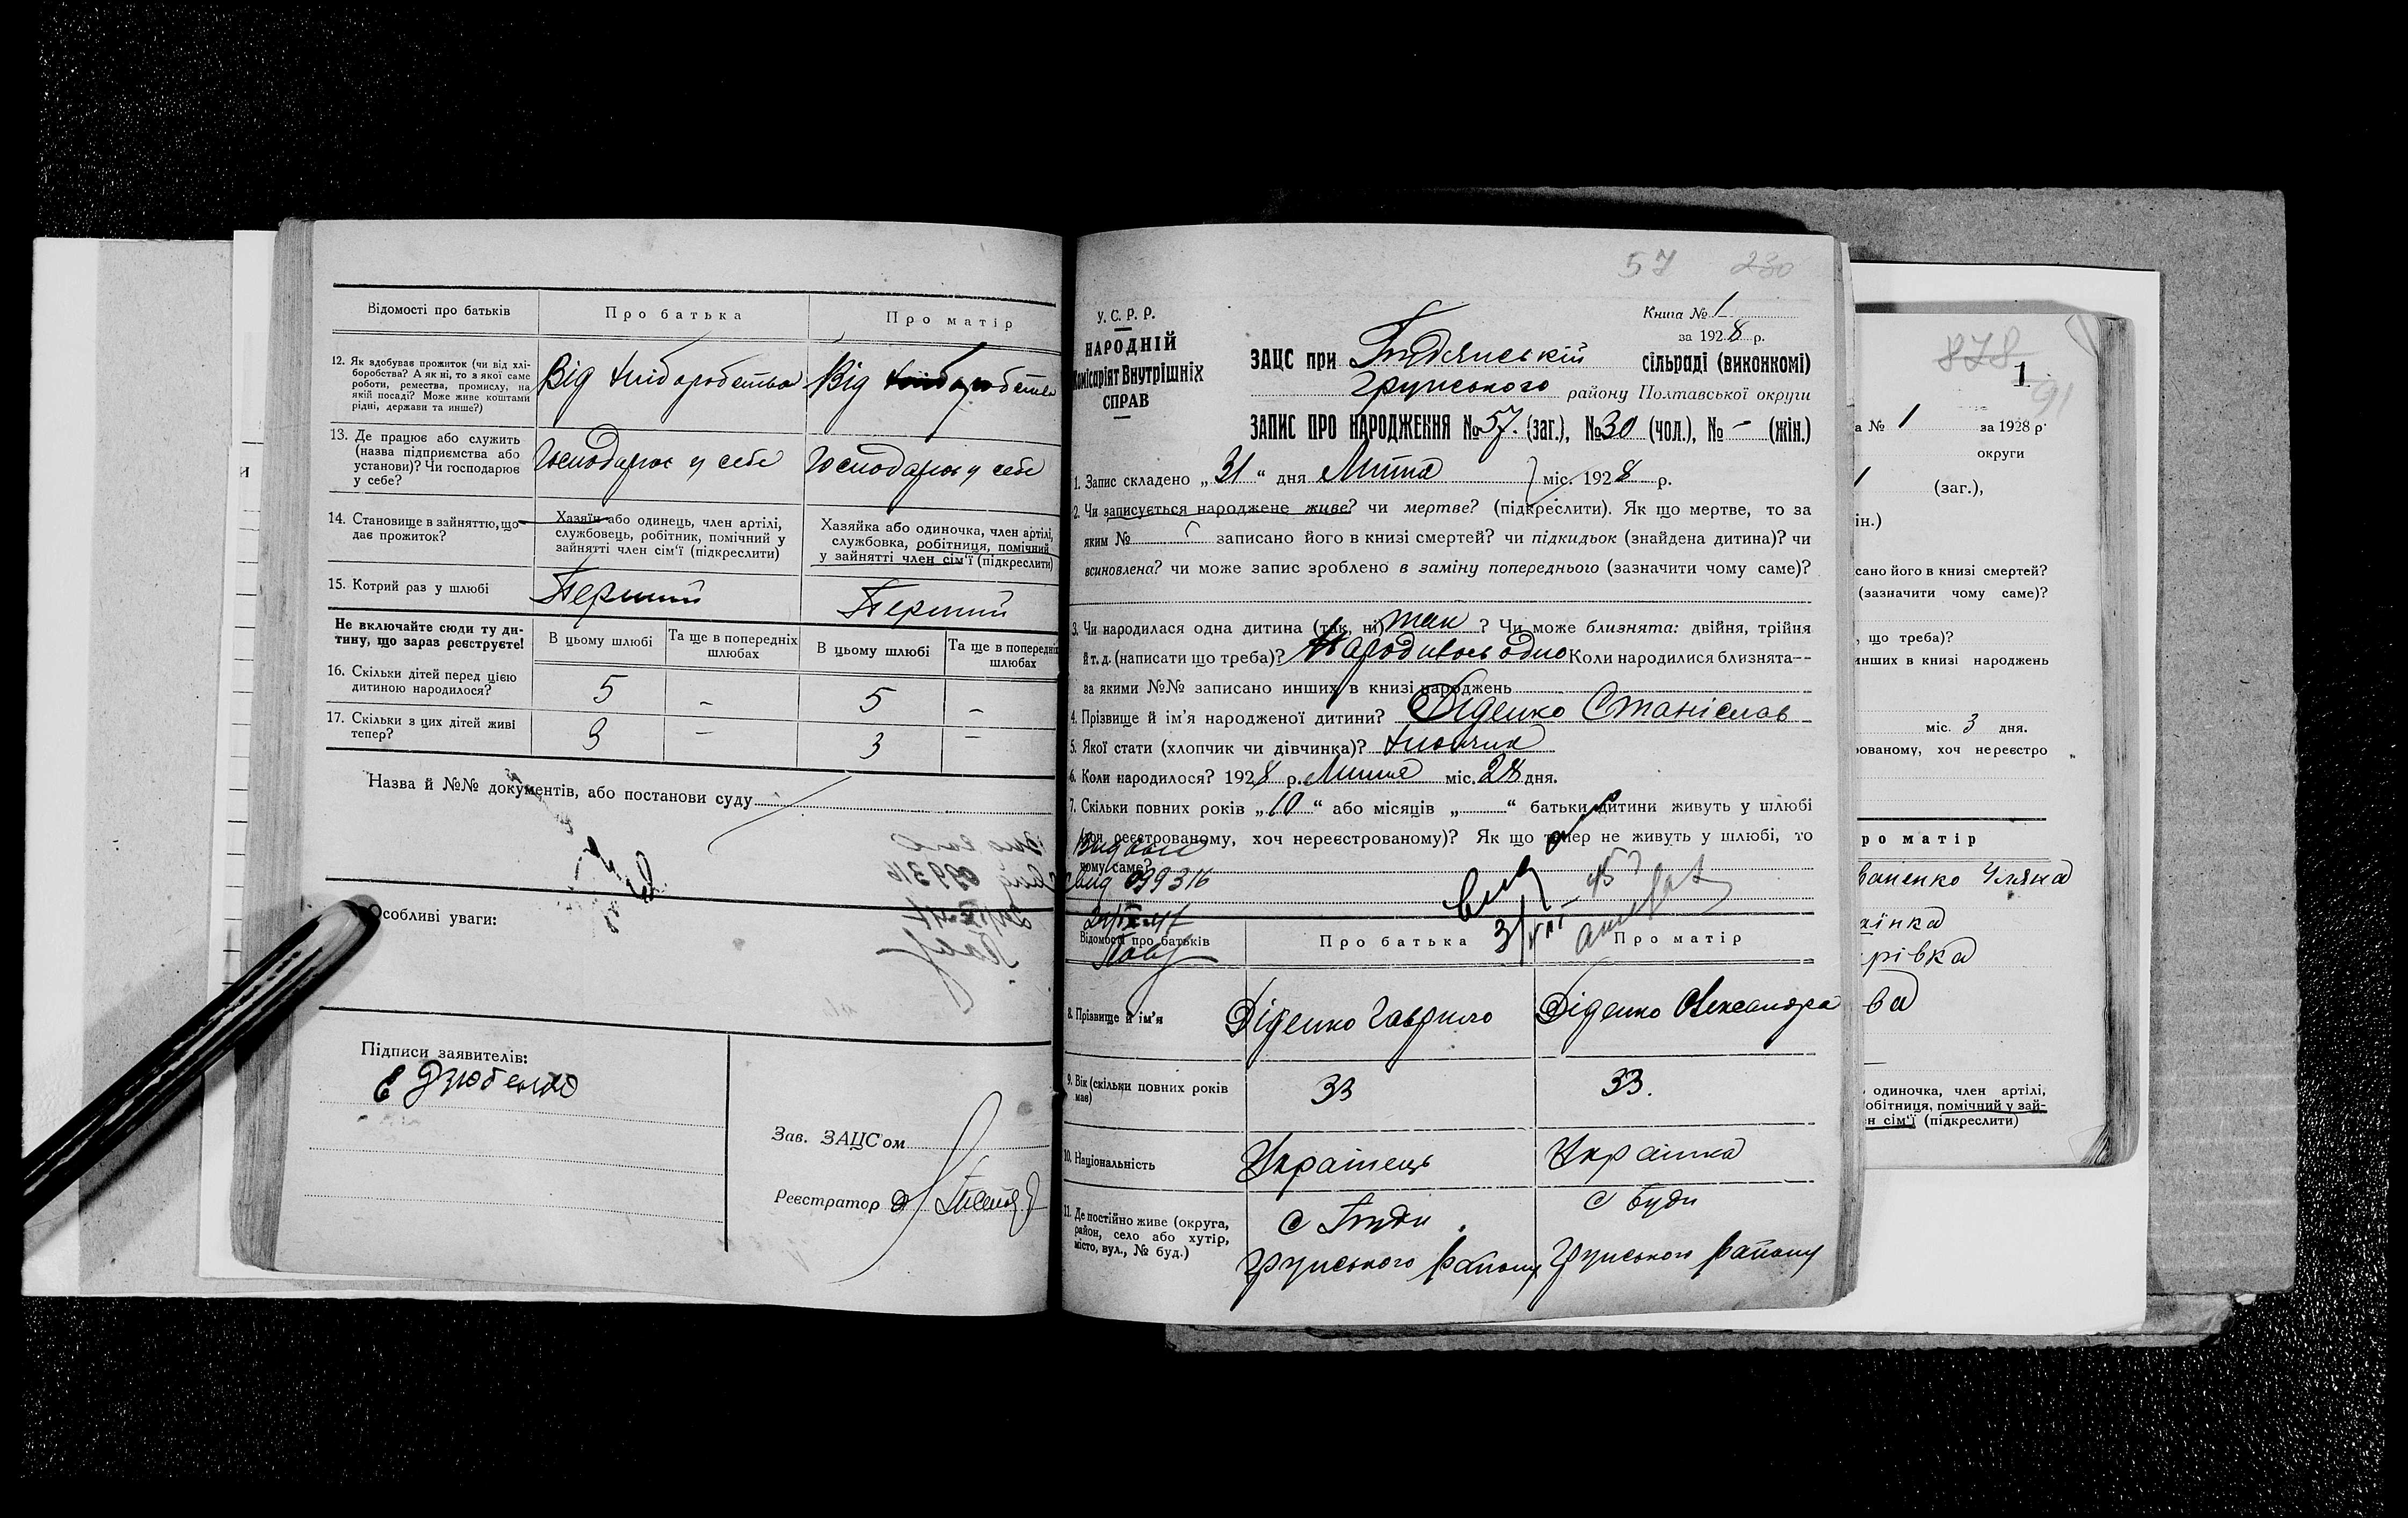 Відомості про батьків
Про батька
Про матір
12. Як здобуває прожиток (чи від хлі-
боробства? А як ні, то з якої саме
роботи, ремества, промислу, на
якій посаді? Може живе коштами
рідні, держави та инше?)
Від хліборобства
Від хліборобства
13. Де працює або служить
(назва підприємства або
установи)? Чи господарює
у себе?
Господарює у себе
Господарює у себе
14. Становище в зайняттю, що
дає прожиток?
Хазяїн або одинець, член артілі,
службовець, робітник, помічний у
зайнятті член сім'ї (підкреслити)
Хазяйка або одиночка, член артілі,
службовка, робітниця, помічний
у зайнятті член сім'ї (підкреслити)
15. Котрий раз у шлюбі
Перший
Перший
Не включайте сюди ту ди-
тину, що зараз реєструєте!
В цьому шлюбі
Та ще в попередніх
шлюбах
В цьому шлюбі
Та ще в попередніх
шлюбах
16. Скільки дітей перед цією
дитиною народилося?
5
–
5
–
17. Скільки з цих дітей живі
тепер?
3
–
3
–
Назва й №№ документів, або постанови суду
Особливі уваги:
Підписи заявителів:
Е Дзюбенко
Зав. ЗАЦС'ом
Реєстратор
57 230
У. С. Р. Р.
НАРОДНІЙ
Комісаріят Внутрішніх
СПРАВ
Книга № 1
за 1928 р.
ЗАЦС при Будянській сільраді (виконкомі)
Грунського району Полтавської округи
ЗАПИС ПРО НАРОДЖЕННЯ № 57. (заг.), № 30 (чол.), № – (жін.)
1. Запис складено „31“ дня Липня міс. 1928 р.
2. Чи записується народжене живе? чи мертве? (підкреслити). Як що мертве, то за
яким № записано його в книзі смертей? чи підкидьок (знайдена дитина)? чи
всиновлена? чи може запис зроблено в заміну попереднього (зазначити чому саме)?
3. Чи народилася одна дитина (так, ні) так ? Чи може близнята: двійня, трійня
й т. д. (написати що треба)? Народилось одно Коли народилися близнята--
за якими №№ записано инших в книзі народжень
4. Прізвище й ім'я народженої дитини? Діденко Станіслав
5. Якої стати (хлопчик чи дівчинка)? хлопчик
6. Коли народилося? 1928 р. Липня міс. 28 дня.
7. Скільки повних років „10“ або місяців „ “ батьки дитини живуть у шлюбі
(хоч реєстрованому, хоч нереєстрованому)? Як що тепер не живуть у шлюбі, то
чому саме?
Видано
Свид 099316
Відомості про батьків
Про батька
Про матір
8. Прізвище й ім'я
Діденко Гаврило
Діденко Олександра
9. Вік (скільки повних років
має)
33
33.
10. Національність
Українець
Українка
11. Де постійно живе (округа,
район, село або хутір,
місто, вул., № буд.)
с Буди
Грунського району
с Буди
Грунського району
878
1
91
а № 1 за 1928 р.
округи
(заг.),
ін.)
сано його в книзі смертей?
(зазначити чому саме)?
, що треба)?
инших в книзі народжень
міс. 3 дня.
ованому, хоч нереєстро
ро матір
ваненко Уляна
аїнка
рівка
ва
одиночка, член артілі,
обітниця, помічний у зай-
н сім'ї (підкреслити)